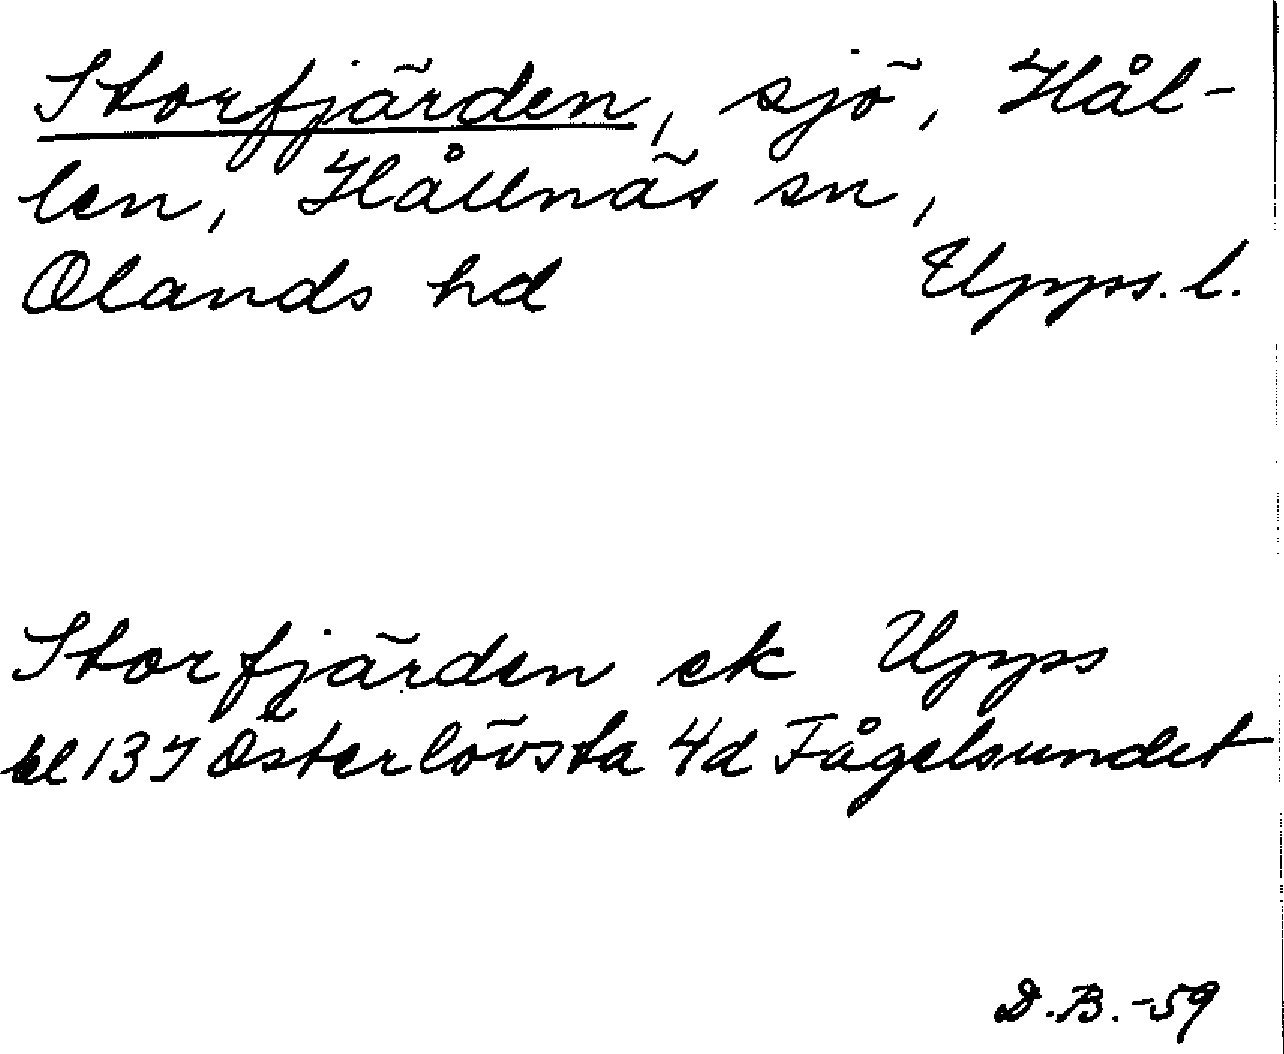 Storfjärden, sjö, Hål-
len, Hållnäs sn,
Olands hd Upps. l.
Storfjärden ek Upps
bl 13I Österlövsta 4d Fågelsundet
D.B.-59